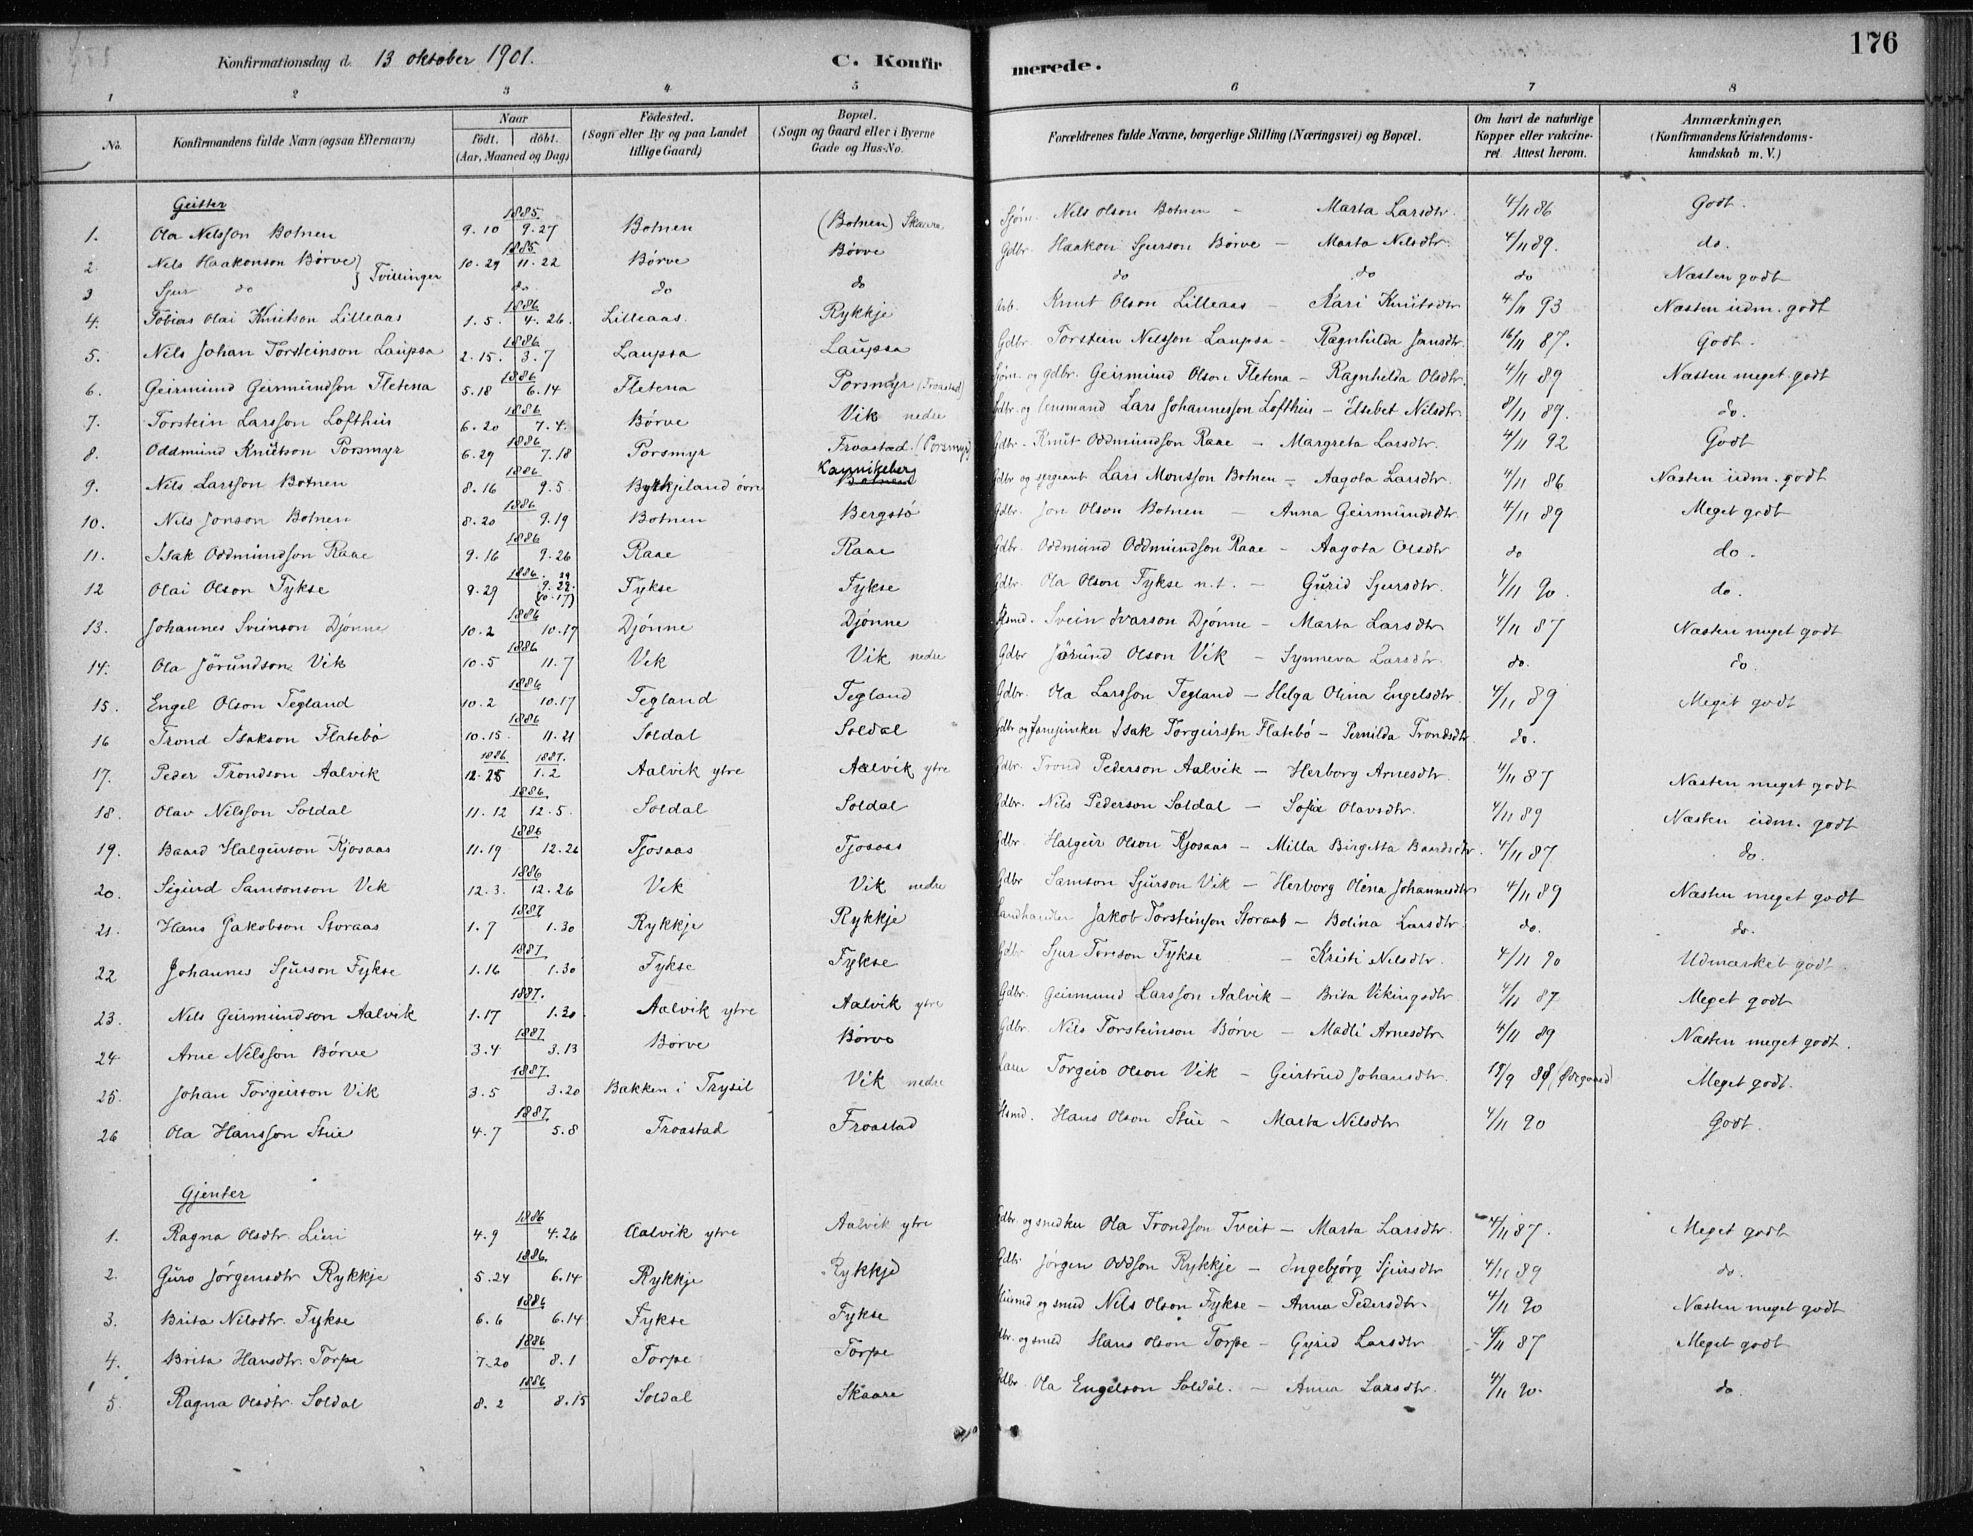 176
Konfirmationsdag d. 13 oktober 1901. C. Konfirmerede.
1 2 3 4 5 6 7 8
No. Konfirmandens fulde Navn (ogsaa Efternavn) Naar födt. döbt. (Aar, Maaned og Dag) Födested. (Sogn eller By og paa Landet tillige Gaard) Bopæl. (Sogn og Gaard eller i Byerne Gade og Hus-No. Forældrenes fulde Navne, borgerlige Stilling (Næringsvei) og Bopæl. Om havt de naturlige Kopper eller vakcineret. Attest herom. Anmærkninger. (Konfirmandens Kristendomskundskab m. V.)
Geitter
1. Ola Nilsson Botnen 1885 9.10 9.27 Botnen (Botnen) Skaare Sjøm. Nils Olson Botnen - Marta Larsdtr. 4/11 86 Godt.
2. Nils Haakonson Børve } Tvillinger 1885 10.29 11.22 Børve Børve Gdbr. Haakon Sjurson Børve - Marta Nilsdtr. 4/11 89. do.
3 Sjur do do do do do do do Næsten godt
4. Tobias Olai Knutson Lilleaas 1886 1.5. 4.26. Lilleaas. Rykkje Arb. Knut Olson Lilleaas - Kari Knutsdtr 4/11 93 Næsten udm. godt
5. Nils Johan Torsteinson Laupsa 1886 2.15. 3.7 Laupsa Laupsa Gdbr Torstein Nilsson Laupsa - Ragnhilda Jansdtr. 16/11 87. Godt.
6. Geirmund Geirmundson Fletena 1886 5.18 6.14 Fletena Porsmyr (Froastad) Sjøm. og gdbr. Geirmund Olson Fletena - Ragnhilda Olsdtr. 4/11 89 Næsten meget godt
7. Torstein Larsson Lofthus 1886 6.20 7.4. Børve Vik nedre Gdbr. og lensmand Lars Johannesson Lofthus - Elsebet Nilsdtr 8/11 89. do.
8. Oddmund Knutson Porsmyr 1886 6.29 7.18 Porsmyr Froastad. (Porsmyr) Gdbr. Knut Oddmundson Raae - Margreta Larsdtr. 4/11 92 Godt
9. Nils Larsson Botnen 1886 8.16 9.5 Bykkjeland övre Kannikeberg Botnen Gdbr og sergeant Lars Monsson Botnen - Aagota Larsdtr. 4/11 86 Næsten udm. godt
10. Nils Jonson Botnen 1886 8.20 9.19 Botnen Bergstö Gdbr. Jon Olson Botnen - Anna Geirmundsdtr. 4/11 89 Meget godt
11. Isak Oddmundson Raae 1886 9.16 9.26 Raae Raae Gdbr. Oddmund Oddmundson Raae - Aagota Olsdtr do do.
12 Olai Olson Fykse 1886. 9.29 (10.17) Fykse Fykse Gdbr. Ola Olson Fykse n.t. - Gurid Sjursdtr. 4/11 90. do.
13. Johannes Sveinson Djønne 1886 10.2 10.17 Djønne Djønne Hsmd. Svein Ivarson Djønne - Marta Larsdtr 4/11 87 Næsten meget godt
14. Ola Jørundson Vik 1886 10.5 11.7 Vik Vik nedre Gdbr Jørund Olson Vik - Synneva Larsdtr. do. do.
15. Engel Olson Tegland 1886 10.2 10.17 Tegland Tegland Gdbr. Ola Larsson Tegland - Helga Olina Engelsdtr. 4/11 89 Meget godt
16 Trond Isakson Flatebø 1886 10.15. 11.21 Soldal Soldal Isak Torgeirson Flatebø - Pernilda Trondsdtr do.
17. Peder Trondson Aalvik 1886 1887. 12.25 1.2 Aalvik ytre Aalvik ytre Gdbr. Trond Pederson Aalvik - Herborg Arnesdtr. 4/11 87 Næsten meget godt
18. Olav Nilsson Soldal 1886. 11.12 12.5. Soldal Soldal Gdbr. Nils Pederson Soldal - Sofie Olavsdtr. 4/11 89 Næsten udm. godt
19. Baard Halgeirson Kjosaas 1886 11.19 12.26 Tjosaas Tjosaas Gdbr. Halgeir Olson Kjosaas - Milla Birgetta Baardsdtr. 4/11 87 do.
20. Sigurd Samsonson Vik 1886 12.3. 12.26 Vik Vik nedre Gdbr Samson Sjurson Vik - Herborg Olena Johannesdtr 4/11 89 Næsten meget godt
21. Hans Jakobson Storaas 1887 1.7 1.30 Rykkje Rykkje Landhandler Jakob Torsteinson Storaas - Bolina Larsdtr. do. do.
22 Johannes Sjurson Fykse 1887 1.16 1.30 Fykse Fykse Gdbr Sjur Toreson Fykse - Kristi Nilsdtr. 4/11 90 Udmærket godt.
23. Nils Geirmundson Aalvik 1887. 1.17 1.30 Aalvik ytre Aalvik ytre Gdbr. Geirmund Larsson Aalvik - Brita Vikingsdtr. 4/11 87 Meget godt
24 Arne Nilsson Børve 1887 3.4 3.13 Børve Børve Gdbr. Nils Torsteinson Børve - Madli Arnesdtr 4/11 89 Næsten meget godt.
25. Johan Torgeirson Vik 1887 3.5 3.20 Bakken i Trysil Vik nedre Torgeir Olson Vik - Geirtrud Johansdtr. (Ødegaard) Meget godt.
26 Ola Hansson Stue 1887. 4.7 5.8 Froastad Froastad Hsmd. Hans Olson Stue - Marta Nilsdtr 4/11 90 Godt.
Gjenter
1. Ragna Olsdtr. Lien 1886 4.9 4.26 Aalvik ytre Aalvik ytre Gdbr. og snedker Ola Trondson Tveit - Marta Larsdtr. 4/11 87. Meget godt
2. Guro Jørgensdtr Rykkje 1886. 5.24 6.14 Rykkje Rykkje Gdbr. Jørgen Oddson Rykkje - Ingebjørg Sjursdtr 4/11 89 do.
3. Brita Nilsdtr. Fykse 1886 6.6 6.14 Fykse Fykse Husmd og smed Nils Olson Fykse - Anna Pedersdtr. 4/11 90 Næsten meget godt
4. Brita Hansdtr. Torpe 1886 7.20 8.1 Torpe Torpe Gdbr. og smed Hans Olson Torpe - Gyrid Larsdtr 4/11 87 Meget godt
5. Ragna Olsdtr. Soldal 1886 8.2 8.15 Soldal Skaare Gdbr. Ola Engelson Soldal. - Anna Larsdtr. 4/11 90. do.